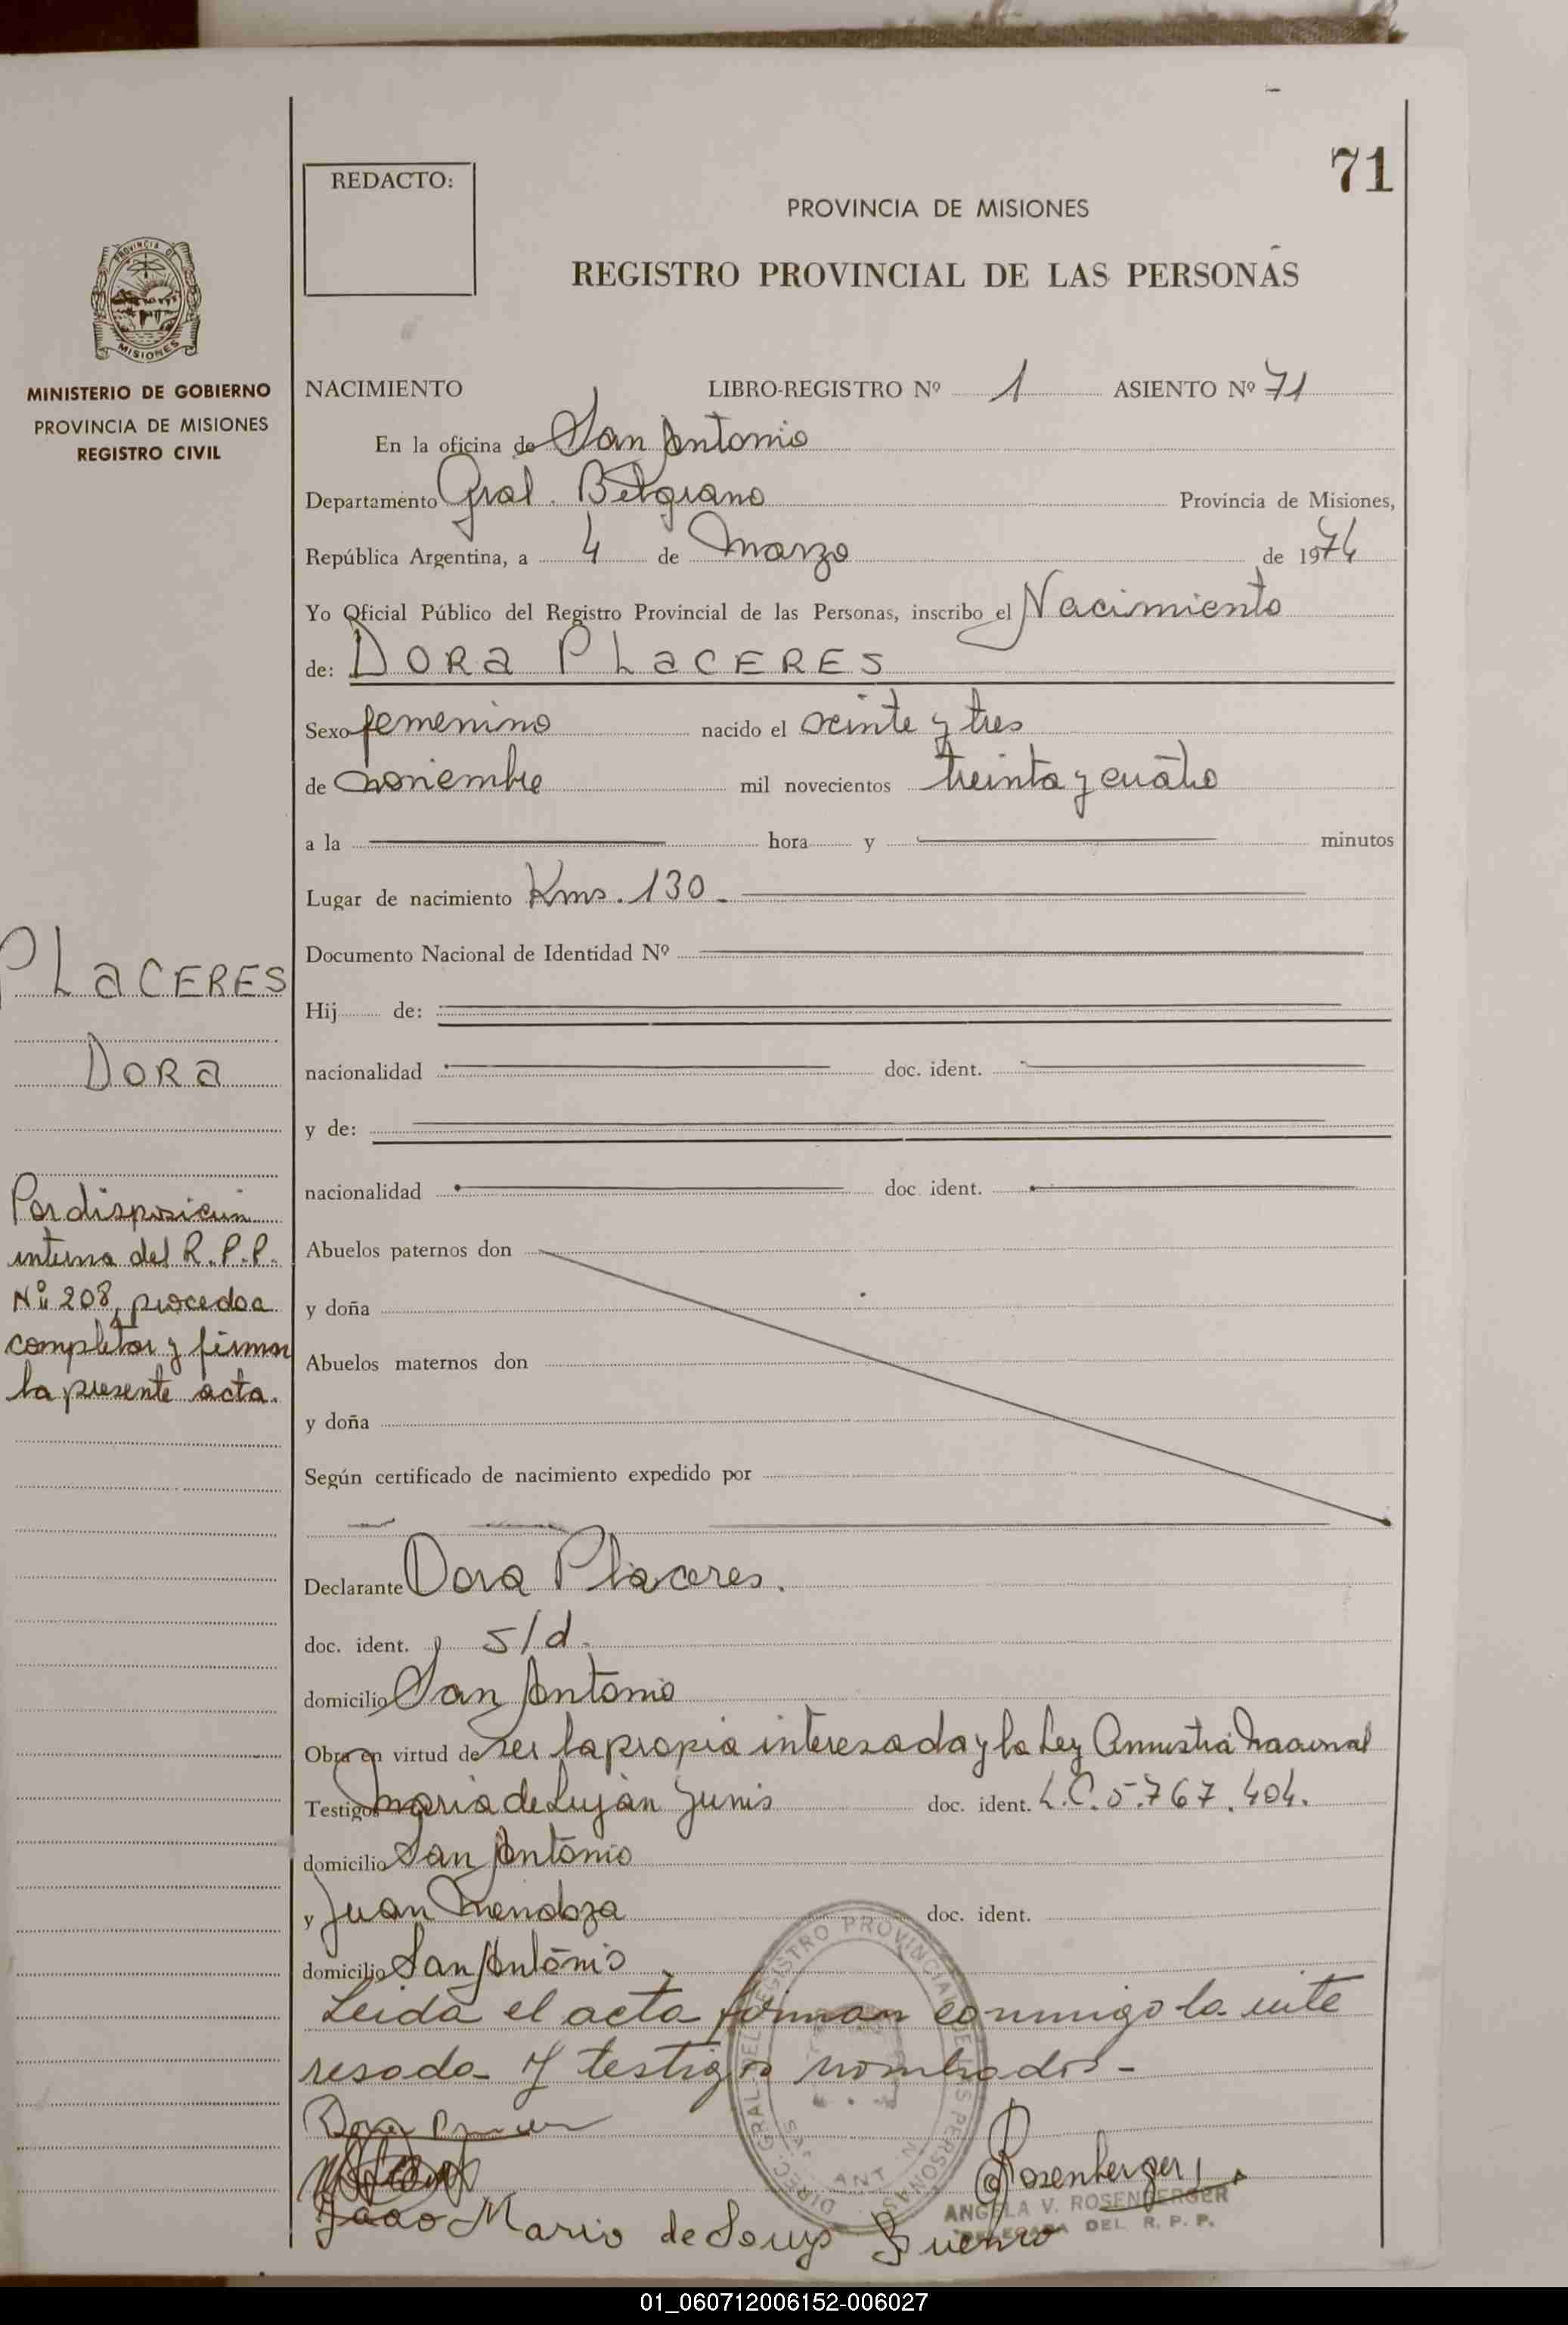 71
REDACTO:
PROVINCIA DE MISIONES
REGISTRO PROVINCIAL DE LAS PERSONAS
PROVINCIA DE
MISIONES
MINISTERIO DE GOBIERNO
PROVINCIA DE MISIONES
REGISTRO CIVIL
NACIMIENTO LIBRO-REGISTRO Nº 1 ASIENTO Nº 71
En la oficina de San Antonio
Departamento Gral. Belgrano Provincia de Misiones,
República Argentina, a 4 de Marzo de 1974
Yo Oficial Público del Registro Provincial de las Personas, inscribo el Nacimiento
de: DORA PLACERES
Sexo femenino nacido el veinte y tres
de noviembre mil novecientos treinta y cuatro
a la hora y minutos
Lugar de nacimiento Kms. 130.
Documento Nacional de Identidad Nº
Hij de:
nacionalidad doc. ident.
y de:
nacionalidad doc. ident.
Abuelos paternos don
y doña
Abuelos maternos don
y doña
Según certificado de nacimiento expedido por
Declarante Dora Placeres.
doc. ident. s/d.
domicilio San Antonio
Obra en virtud de ser la propia interesada y la Ley Amnistia Nacional
Testigos Maria de Luján Junis doc. ident. L.C. 5.767.404.
domicilio San Antonio
y Juan Mendoza doc. ident.
domicilio San Antonio
Leida el acta firman conmigo la inte
resada y testigos nombrados-
PLACERES
DORA
Por disposicion
interna del R.P.P.
Nº 208, procedo a
completar y firmar
la presente acta.
DIREC. GRAL. DEL REGISTRO PROVINCIAL DE LAS PERSONAS
Dora
Rosenberger
ANGELA V. ROSENBERGER
DELEGADA DEL R. P. P.
Joao Mario de Bueno
01_060712006152-006027